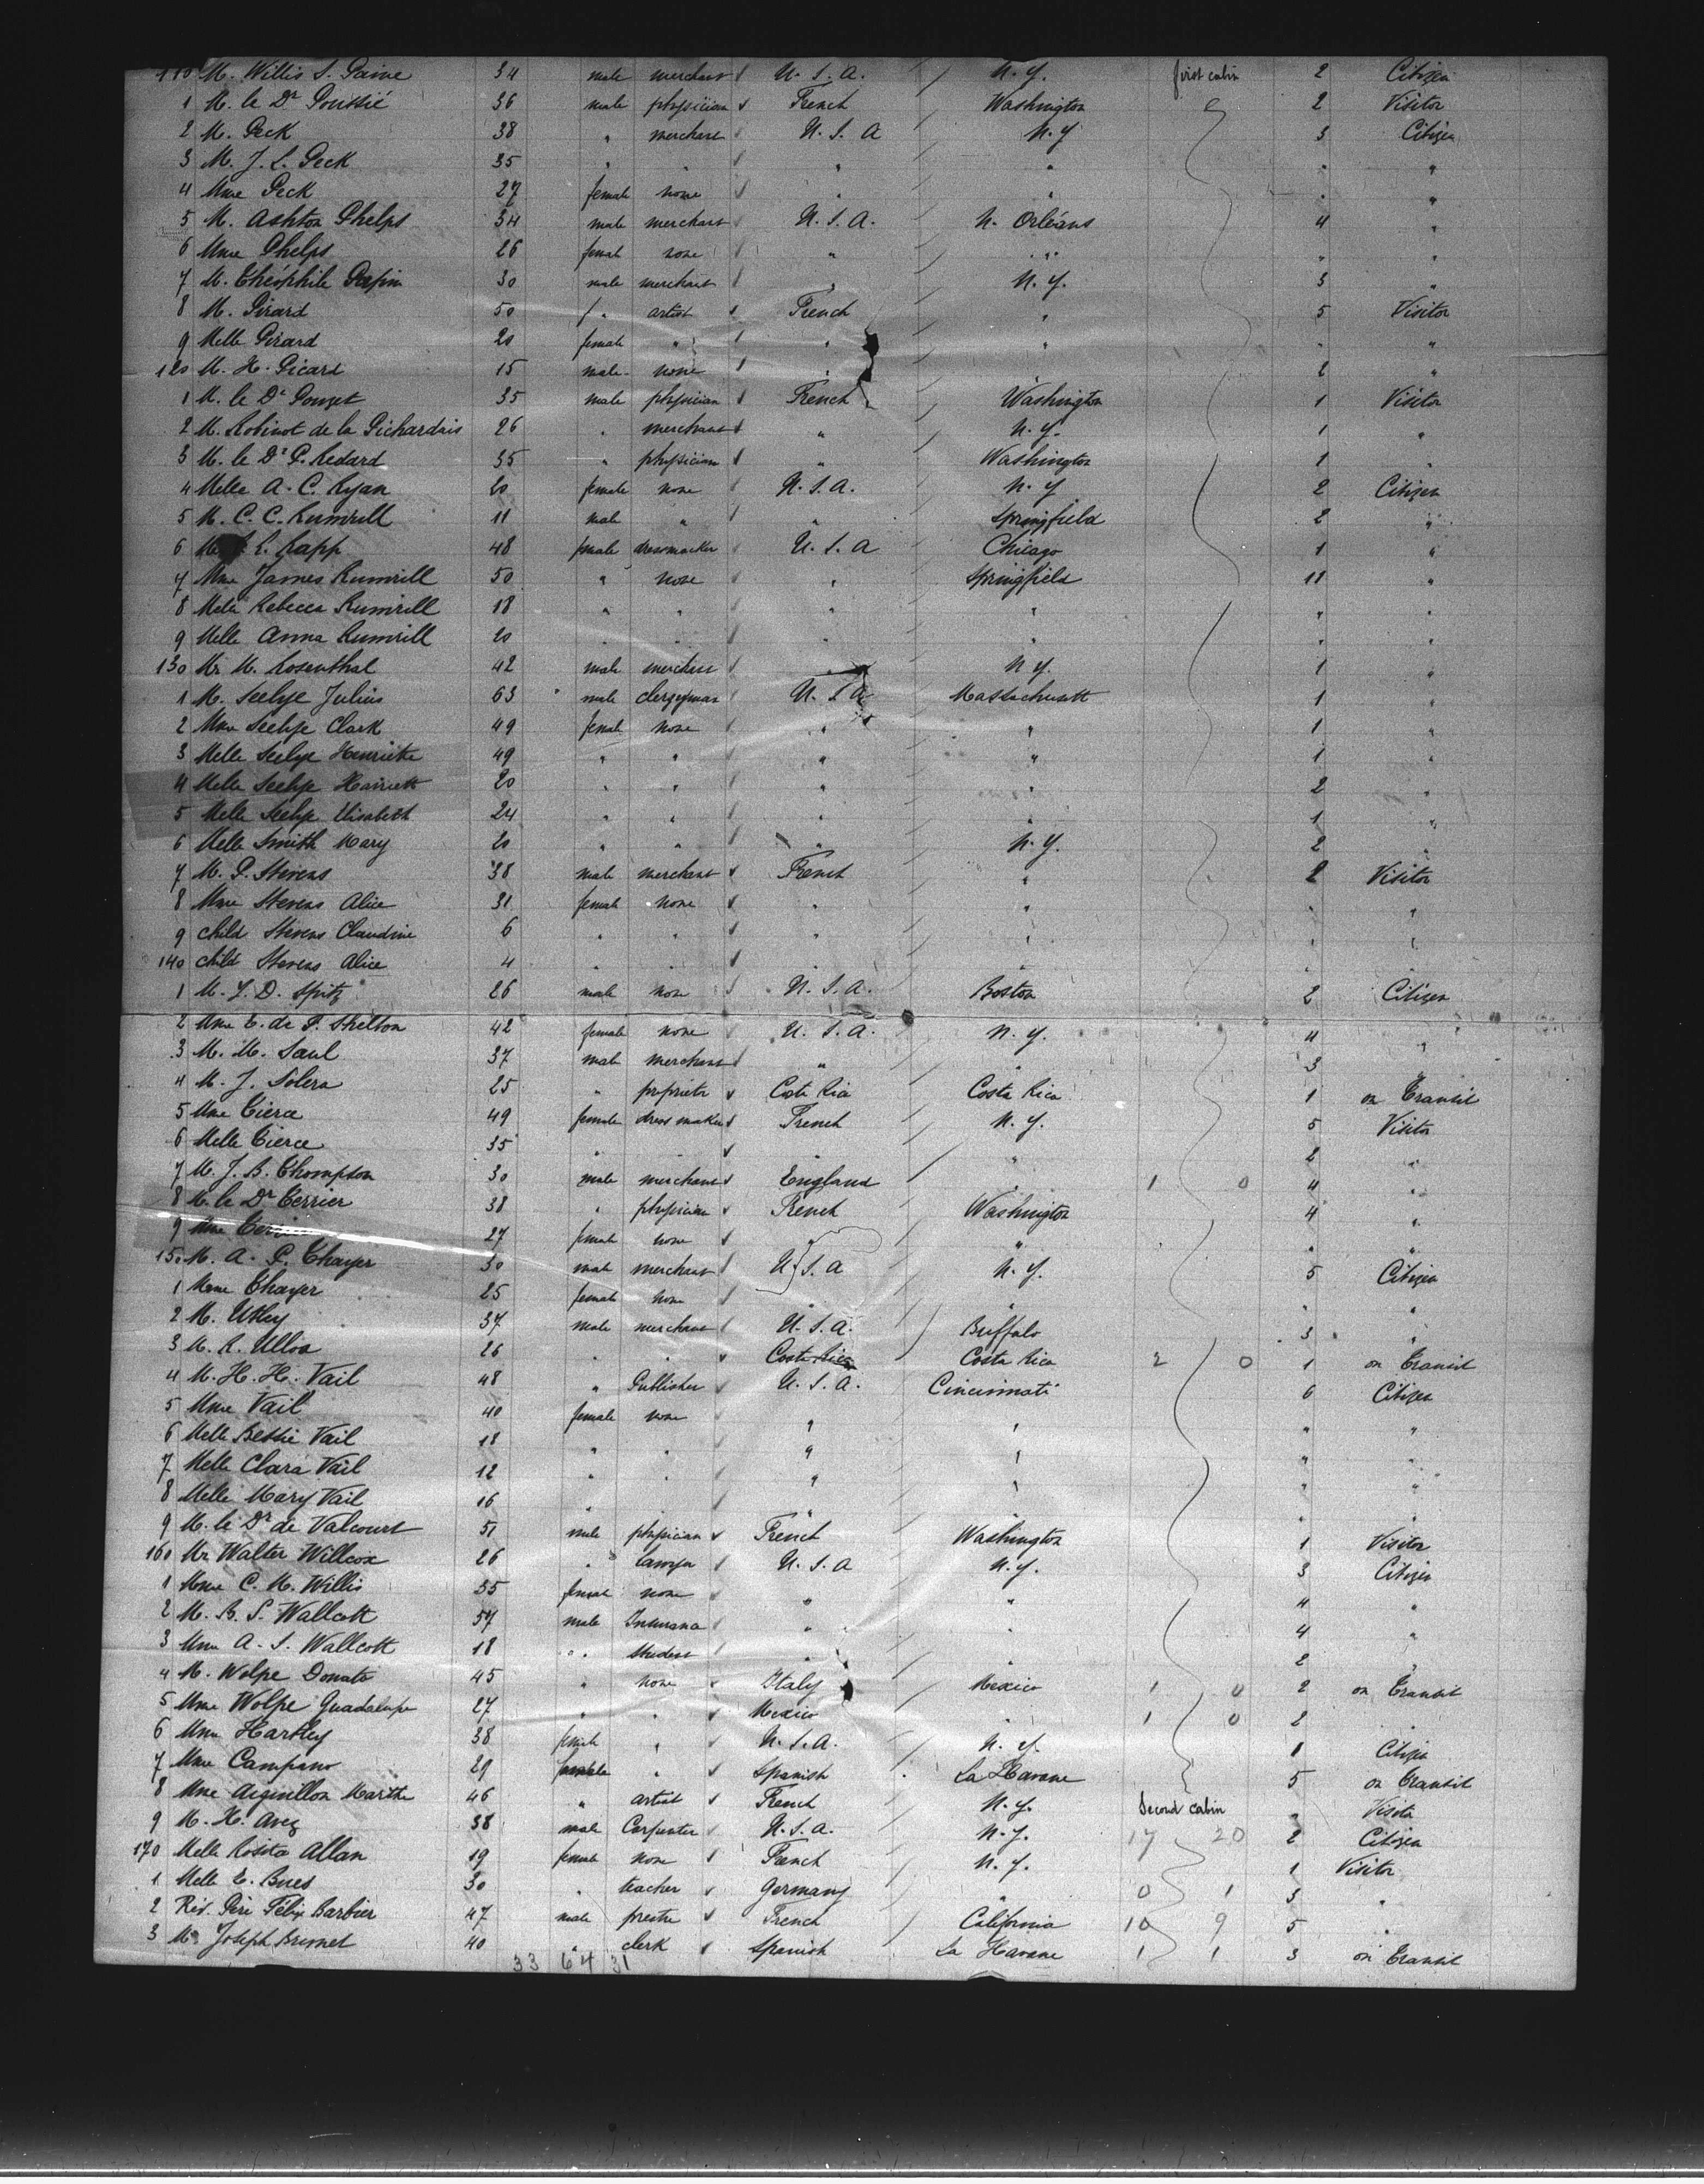 110 M. Willis S. Paine 34 male merchant U. S. A. N. Y. first cabin 2 Citizen
1 M. le Dr Poussié 36 male physician French Washington 2 Visitor
2 M. Peck 38 " merchant U. S. A N. Y 3 Citizen
3 M. J. L. Peck 35 " " " " " "
4 Mme Peck 27 female none " " " "
5 M. Ashton Phelps 34 male merchant U. S. A. N. Orléans 4 "
6 Mme Phelps 26 female none " " " "
7 M. Théophile Papin 30 male merchant " N. Y. 3 "
8 M. Girard 50 " artist French " 5 Visitor
9 Melle Girard 20 female " " " " "
120 M. H. Picard 15 male none " " 2 "
1 M. le Dr Pouzet 35 male physician French Washington 1 Visitor
2 M. Robinot de la Pichardais 26 " merchant " N. Y. 1 "
3 M. le Dr P. Redard 35 " physician " Washington 1 "
4 Melle A. C. Ryan 20 female none U. S. A. N. Y 2 Citizen
5 M. C. C. Rumrill 11 male " " Springfield 2 "
6 L. Rapp 48 female dressmacker U. S. A Chicago 1 "
7 Mme James Rumrill 50 " none " Springfield 11 "
8 Melle Rebecca Rumrill 18 " " " " " "
9 Melle Anna Rumrill 20 " " " " " "
130 Mr M. Rosenthal 42 male merchant " N. Y. 1 "
1 M. Seelye Julius 63 male clergyman U. S. A Massachusett 1 "
2 Mme Seelye Clark 49 female none " " 1 "
3 Melle Seelye Henriette 49 " " " " 1 "
4 Melle Seelye Harriett 20 " " " " 2 "
5 Melle Seelye Elisabeth 24 " " " " 1 "
6 Melle Smith Mary 20 " " " N. Y. 2 "
7 M. P. Stevens 38 male merchant French " 2 Visitor
8 Mme Stevens Alice 31 female none " " " "
9 child Stevens Claudine 6 " " " " " "
140 child Stevens Alice 4 " " " " " "
1 M. L. D. Spitz 26 male none U. S. A. Boston 2 Citizen
2 Mme E. de P. Shelton 42 female none U. S. A. N. Y. 4 "
3 M. M. Saul 37 male merchant " " 3 "
4 M. J. Solera 25 " proprieter Costa Rica Costa Rica 1 on Transit
5 Mme Tierce 49 female dress maker French N. Y. 5 Visitor
6 Melle Tierce 35 " " " 2 "
7 M. J. B. Thompson 30 male merchant England " 1 0 4 "
8 M. le Dr Terrier 38 " physician French Washington 4 "
9 Mme Terrier 27 female none " " " "
150 M. A. P. Thayer 30 male merchant U. S. A N. Y. 5 Citizen
1 Mme Thayer 25 female none " " " "
2 M. Utley 37 male merchant U. S. A. Buffalo 3 "
3 M. R. Ulloa 26 " " Costa Rica Costa Rica 2 0 1 on Transit
4 M. H. H. Vail 48 " Publisher U. S. A. Cincinnati 6 Citizen
5 Mme Vail 40 female none " " " "
6 Melle Bessie Vail 18 " " " " " "
7 Melle Clara Vail 12 " " " " " "
8 Melle Mary Vail 16 " " " " "
9 M. le Dr de Valcourt 51 male physician French Washington 1 Visitor
160 Mr Walter Willcox 26 " lawyer U. S. A N. Y. 3 Citizen
1 Mme C. M. Willis 35 female none " " 4 "
2 M. B. S. Wallcott 57 male Insurance " " 4 "
3 Mme A. S. Wallcott 18 " student " " 2 "
4 M. Wolpe Donato 45 " none Italy Mexico 1 0 2 on Transit
5 Mme Wolpe Guadalupe 27 " " Mexico " 1 0 2 "
6 Mme Hartley 38 female " U. S. A. N. Y. 1 Citizen
7 Mme Campano 29 female " Spanish La Havane 5 on Transit
8 Mme Aiguillon Marthe 46 " artist French N. Y. Second cabin " Visitor
9 M. H. Avez 38 male Carpenter U. S. A. N. Y. 17 20 2 Citizen
170 Melle Rosita Allan 19 female none French N. Y. 1 Visitor
1 Melle E. Bues 30 " teacher Germany " 0 1 3 "
2 Rév. Père Félix Barbier 47 male prestre French California 10 9 5 "
3 M. Joseph Brunet 40 " clerk Spanish La Havane 1 1 3 on Transit
33 64 31